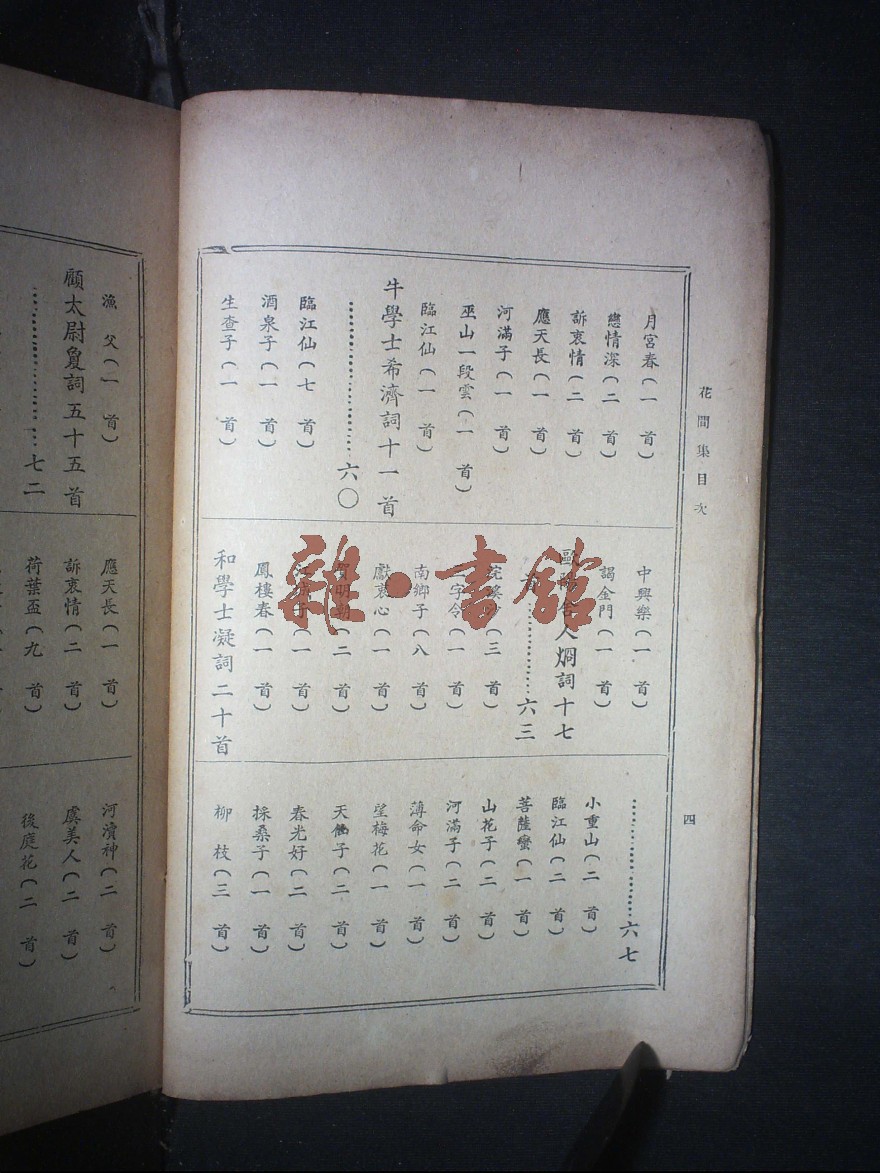 花間集目次
四
月宮春(一首)
戀情深(二首)
訴衷情(二首)
應天長(一首)
河滿子(一首)
巫山一段雲(一首)
臨江仙(一首)
牛學士希濟詞十一首
……六〇
臨江仙(七首)
酒泉子(一首)
生查子(一首)
中興樂(一首)
謁金門(一首)
歐陽舍人烱詞十七
首……六三
浣溪沙(三首)
三字令(一首)
南鄉子(八首)
獻衷心(一首)
賀明朝(二首)
江城子(一首)
鳳樓春(一首)
和學士凝詞二十首
……六七
小重山(二首)
臨江仙(二首)
菩薩蠻(一首)
山花子(二首)
河滿子(二首)
薄命女(一首)
望梅花(一首)
天仙子(二首)
春光好(二首)
採桑子(一首)
柳枝(三首)
漁父(一首)
顧太尉敻詞五十五首
……七二
應天長(一首)
訴衷情(二首)
荷葉盃(九首)
河瀆神(二首)
虞美人(二首)
後庭花(二首)
雜·書館